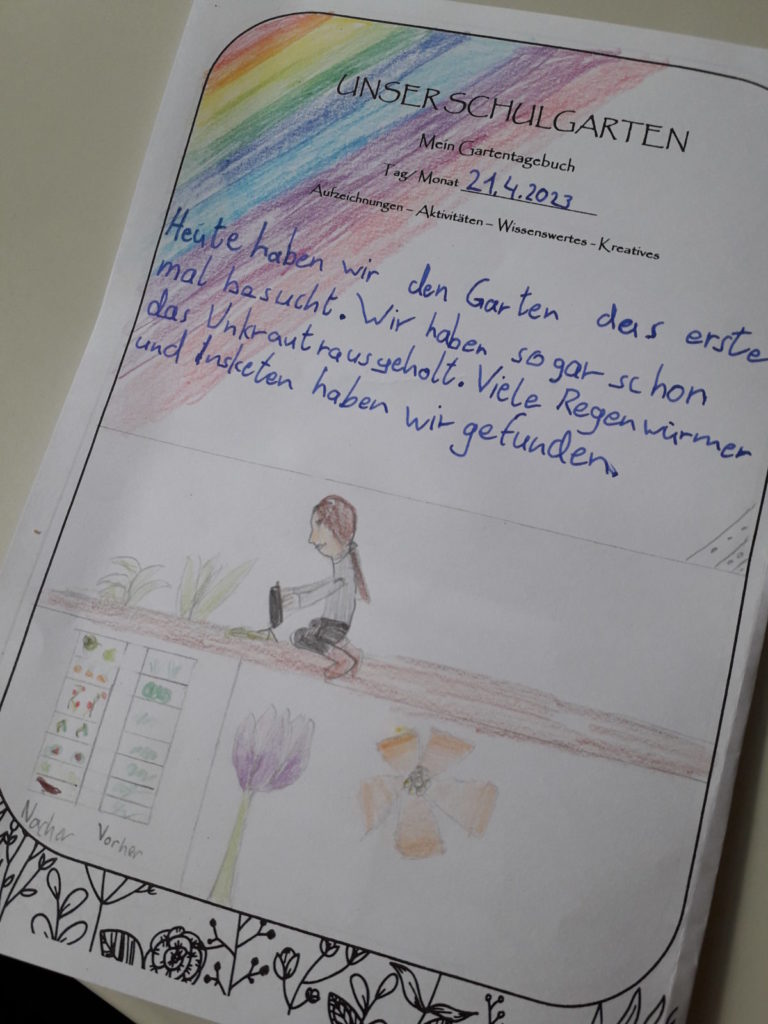 UNSER SCHULGARTEN
Mein Gartentagebuch
Tag/Monat 21.4.2023
Aufzeichnungen – Aktivitäten – Wissenswertes - Kreatives
Heute haben wir den Garten das erste
mal basucht. Wir haben sogar schon
das Unkraut rausgeholt. Viele Regenwürmer
und Insketen haben wir gefunden.
Nacher Vorher